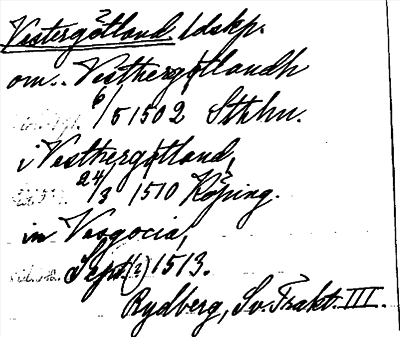 Västergötland, ldskp.
om.. Vesthergötlandh
6/5 1502 Sthlm.
i Vesthergötland,
24/3 1510 Köping.
in Vesgocia,
Sept. (?) 1513.
Rydberg, Sv. Trakt. III.